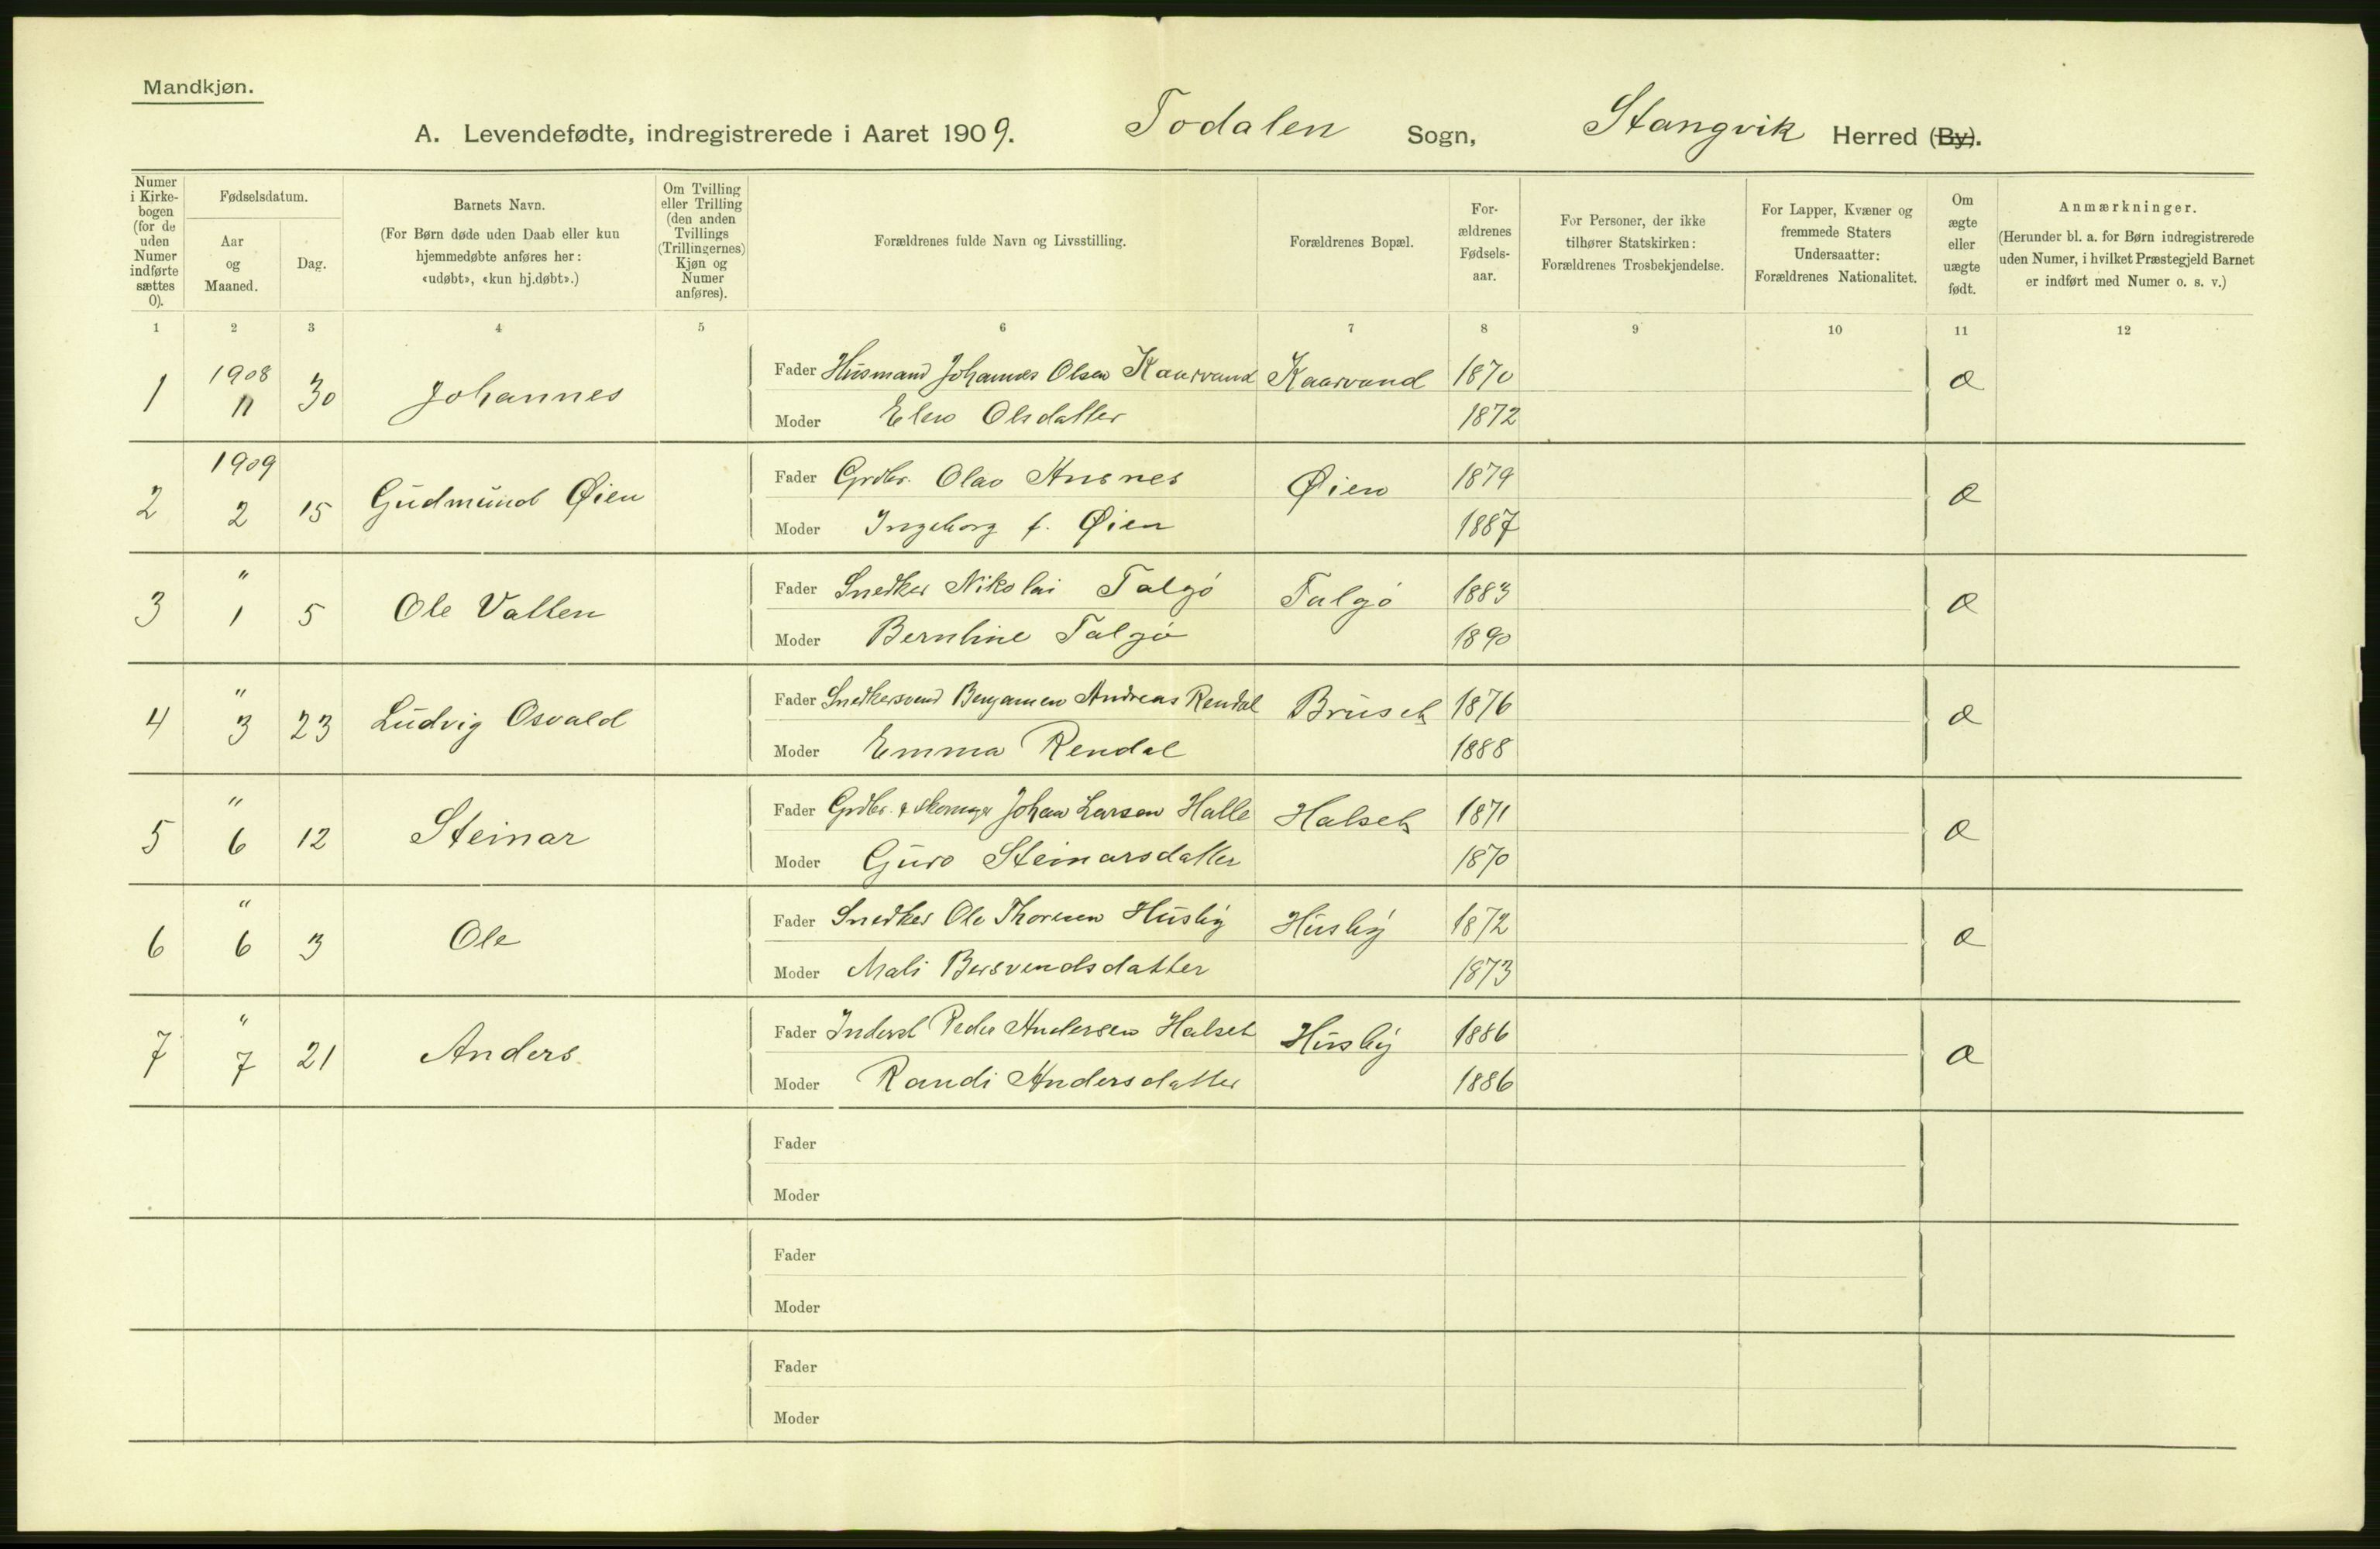 Mandkjøn.
A. Levendefødte, indregistrerede i Aaret 1909. Todalen Sogn, Stangvik Herred (By).
Numer i Kirkebogen (for de uden Numer indførte sættes 0).
Fødselsdatum.
Aar og Maaned.
Dag.
Barnets Navn.
(For Børn døde uden Daab eller kun hjemmedøbte anføres her: «udøbt», «kun hj.døbt».)
Om Tvilling eller Trilling (den anden Tvillings (Trillingernes) Kjøn og Numer anføres).
Forældrenes fulde Navn og Livsstilling.
Forældrenes Bopæl.
Forældrenes Fødselsaar.
For Personer, der ikke tilhører Statskirken: Forældrenes Trosbekjendelse.
For Lapper, Kvæner og fremmede Staters Undersaatter: Forældrenes Nationalitet.
Om ægte eller uægte født.
Anmærkninger.
(Herunder bl. a. for Børn indregistrerede uden Numer, i hvilket Præstegjeld Barnet er indført med Numer o. s. v.)
1 2 3 4 5 6 7 8 9 10 11 12
1 1908 11 30 Johannes Fader Husmand Johannes Olsen Kaarvand Kaarvand 1870 æ
Moder Elen Olsdatter 1872
2 1909 2 15 Gudmund Øien Fader Grdbr. Olav Husnes Øien 1879 æ
Moder Ingeborg f. Øien 1887
3 " 1 5 Ole Vatten Fader Snedker Nikolai Talgö Talgö 1883 æ
Moder Berntine Talgö 1890
4 " 3 23 Ludvig Osvald Fader Snedkersvend Benjamen Andreas Rendal Bruset 1876 æ
Moder Emma Rendal 1888
5 " 6 12 Steinar Fader Grdbr. & Johan Larsen Halle Halset 1871 æ
Moder Guro Steinarsdatter 1870
6 " 6 3 Ole Fader Snedker Ole Thoresen Husby Husby 1872 æ
Moder Mali Bersvendsdatter 1873
7 " 7 21 Anders Fader Inderst Peder Andersen Halset Husby 1886 æ
Moder Randi Andersdatter 1886
Fader
Moder
Fader
Moder
Fader
Moder